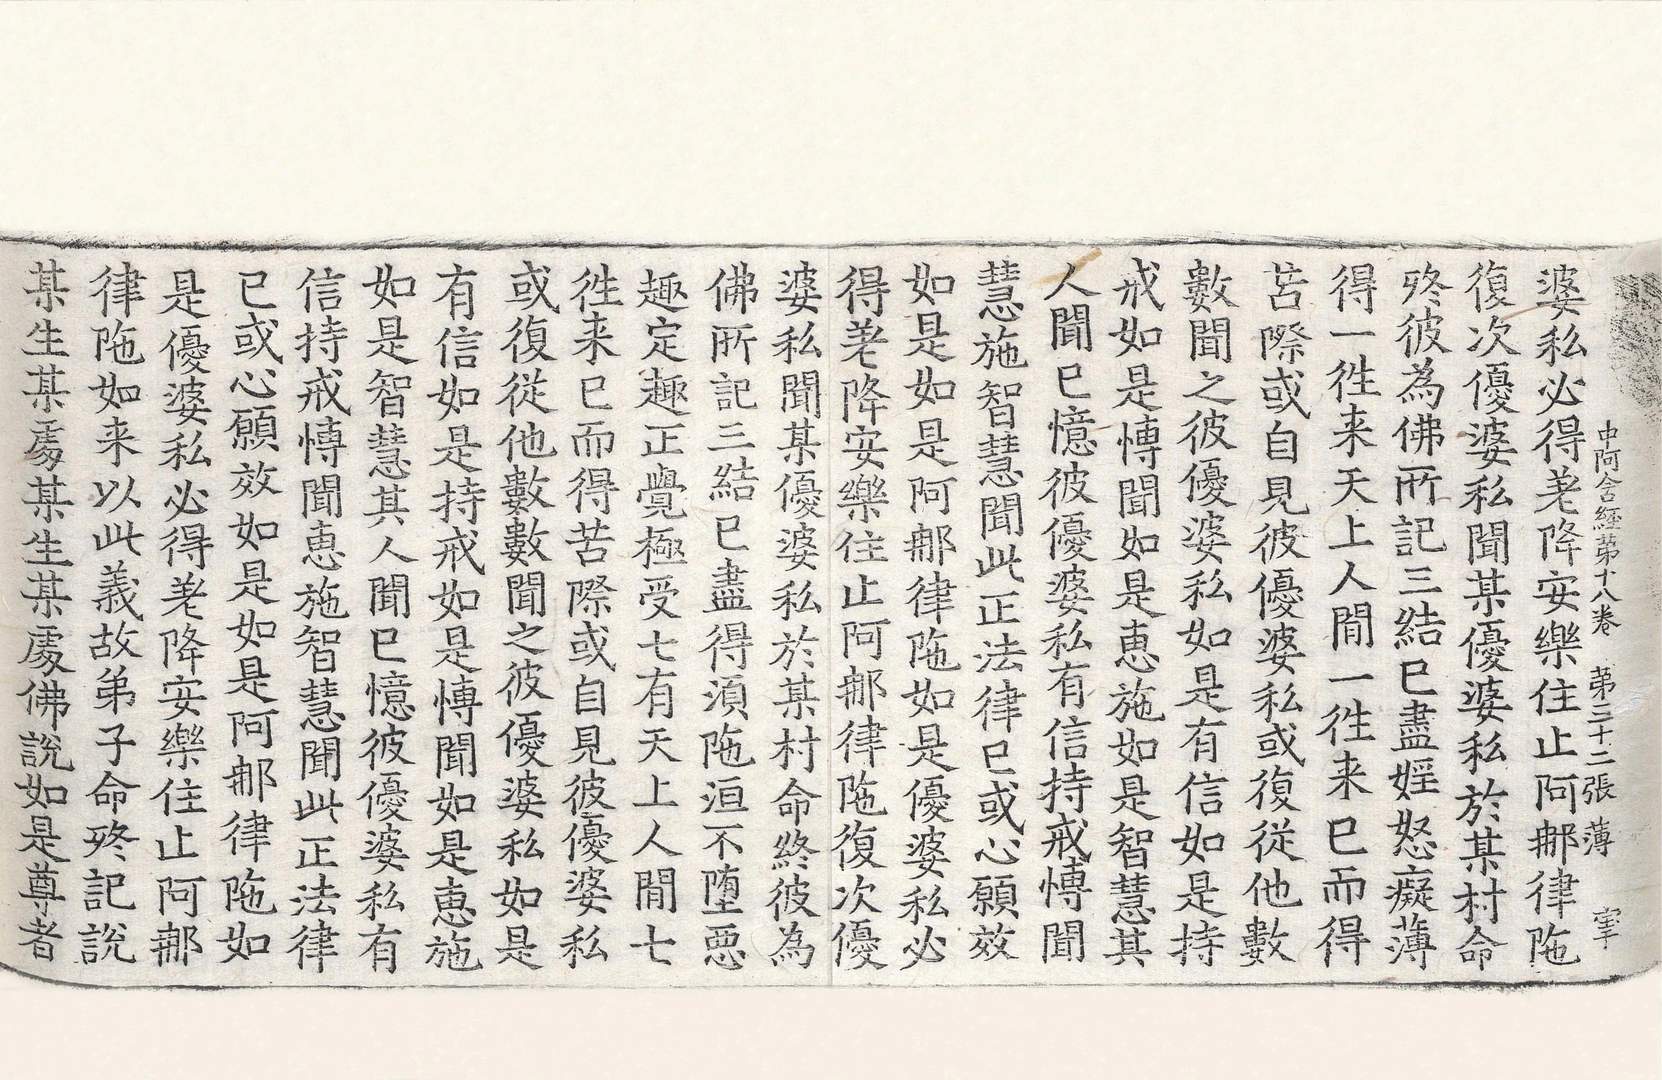 中阿含經第十八卷 第三十二張 薄
婆私必得差降安樂住止阿那律陁
復次優婆私聞某優婆私於某村命
終彼為佛所記三結已盡婬怒癡薄
得一往来天上人間一往来已而得
苦際或自見彼優婆私或復從他數
數聞之彼優婆私如是有信如是持
戒如是愽聞如是惠施如是智慧其
人聞已憶彼優婆私有信持戒愽聞
慧施智慧聞此正法律已或心願效
如是如是阿那律陁如是優婆私必
得差降安樂住止阿那律陁復次優
婆私聞某優婆私於某村命終彼為
佛所記三結已盡得湏陁洹不墮惡
趣定趣正覺極受七有天上人間七
往来已而得苦際或自見彼優婆私
或復從他數數聞之彼優婆私如是
有信如是持戒如是愽聞如是惠施
如是智慧其人聞已憶彼優婆私有
信持戒愽聞惠施智慧聞此正法律
已或心願效如是如是阿那律陁如
是優婆私必得差降安樂住止阿那
律陁如来以此義故弟子命終記說
某生某處某生某處佛說如是尊者